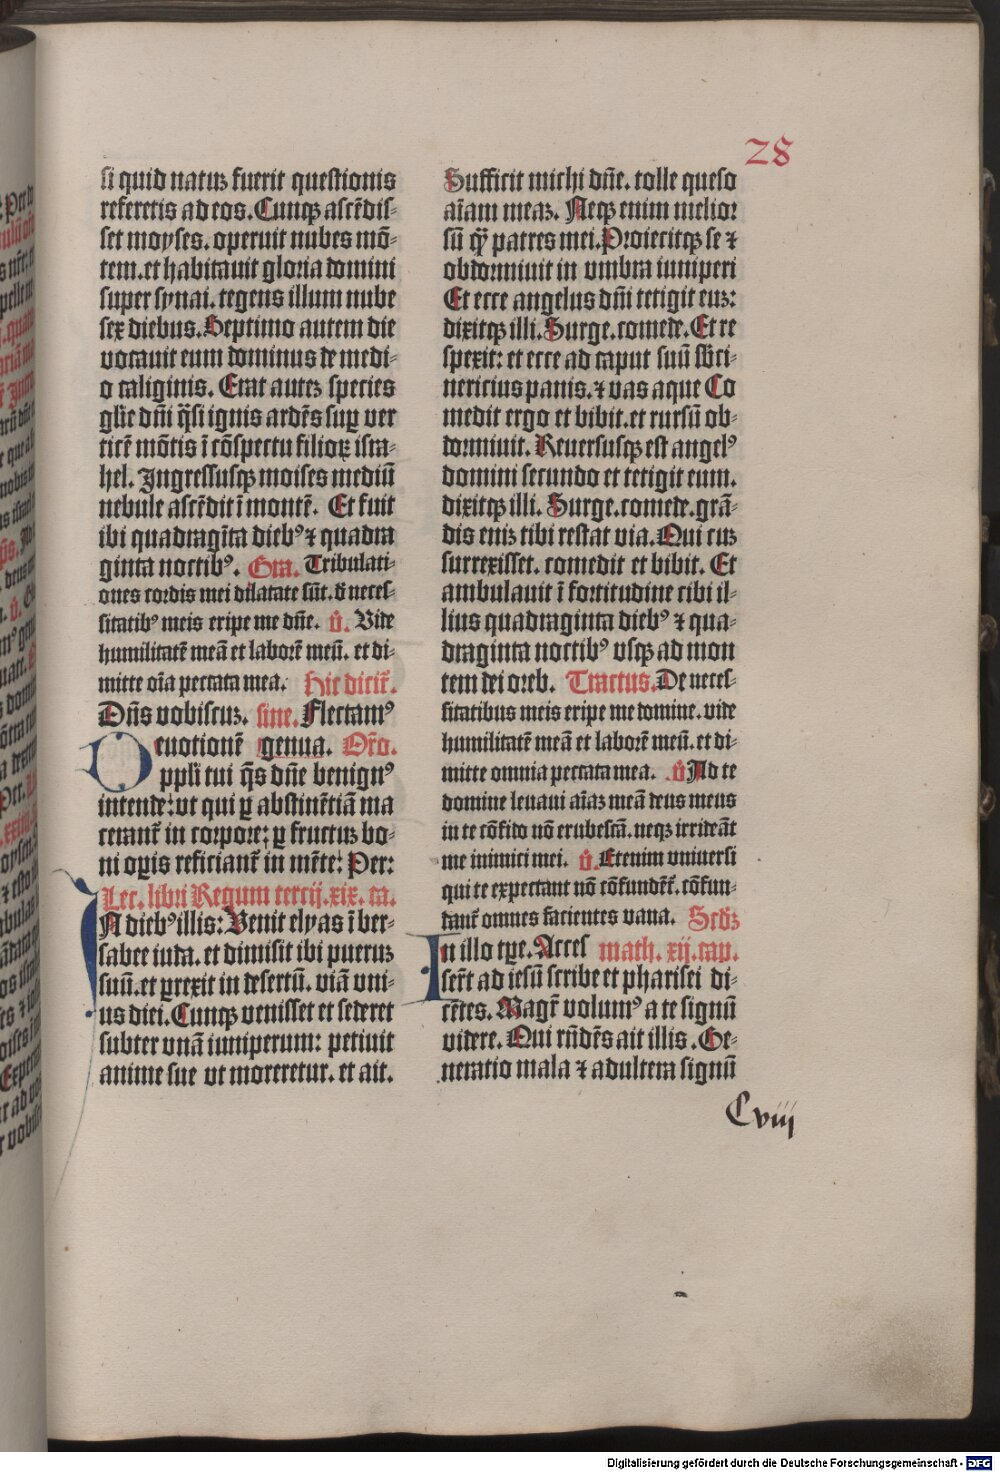 28
si quid natuʒ fuerit questionis
referetis ad eos. Cunqʒ ascēdis-
set moyses. operuit nubes mō-
tem. et habitauit gloria domini
super synai. tegens illum nube
sex diebus. Septimo autem die
vocauit eum dominus de medi-
o caliginis. Erat auteʒ species
glīe dn̄i q̄si ignis ardēs suꝑ ver
ticē mōtis ī cōspectu filioꝝ isra-
hel. Ingressusqʒ moises mediū
nebule ascēdit ī montē. Et fuit
ibi quadragīta dieb⁹ ⁊ quadra
ginta noctib⁹. Gra. Tribulati-
ones cordis mei dilatate sūt. d̄ neces-
sitatib⁹ meis eripe me dn̄e. v̄. Vide
humilitatē meā et laborē meū. et di-
mitte oīa peccata mea. Hic dicit̄.
Dn̄s vobiscuʒ. sine. Flectam⁹
genua. Oīo.
Deuotionē
ppl̄i tui q̄s dn̄e benign⁹
intende: vt qui ꝑ abstinētiā ma
cerant̄ in corpore: ꝑ fructuʒ bo-
ni oꝑis reficiant̄ in mēte: Per:
Lec. libri Regum tercij. xix. ca.
IN dieb⁹ illis: Venit elyas ī ber-
sabee iuda. et dimisit ibi pueruʒ
suū. et ꝑrexit in desertū. viā vni-
us diei. Cunqʒ venisset et sederet
subter vnā iuniperum: petiuit
anime sue vt moreretur. et ait.
Sufficit michi dn̄e. tolle queso
aīam meaʒ. Neqʒ enim melior
sū q̄ꝫ patres mei. Proiecitqʒ se ⁊
obdormiuit in vmbra iuniperi
Et ecce angelus dn̄i tetigit euʒ:
dixitqʒ illi. Surge. comede. Et re
spexit: et ecce ad caput suū sb̄ci-
nericius panis. ⁊ vas aque Co
medit ergo et bibit. et rursū ob-
dormiuit. Reuersusqʒ est angel⁹
domini secundo et tetigit eum.
dixitqʒ illi. Surge. comede. grā-
dis eniʒ tibi restat via. Qui cuʒ
surrexisset. comedit et bibit. Et
ambulauit ī fortitudine cibi il-
lius quadraginta dieb⁹ ⁊ qua-
draginta noctib⁹ vsqʒ ad mon
tem dei oreb. Tractus. De neces-
sitatibus meis eripe me domine. vide
humilitatē meā et laborē meū. et di-
mitte omnia peccata mea. v̄. Ad te
domine leuaui aīaʒ meā deus meus
in te cōfido nō erubescā. neqʒ irrideāt
me inimici mei. v̄. Etenim vniuersi
qui te expectant nō cōfundēt̄. cōfun-
dant̄ omnes facientes vana. Scd̄ʒ
In illo tꝑe. Acces math. xij. cap.
serūt ad iesū scribe et pharisei di-
cētes. Magr̄ volum⁹ a te signū
videre. Qui rn̄dēs ait illis. Ge-
neratio mala ⁊ adultera signū
Cviij
Digitalisierung gefördert durch die Deutsche Forschungsgemeinschaft - DFG